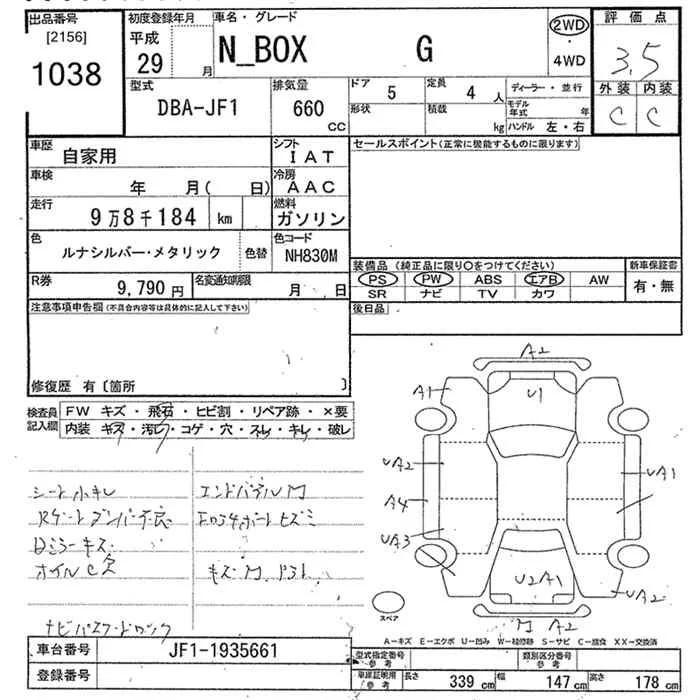 出品番号 初度登録年月 車名・グレード 評価点
[2156]
1038
平成
29 月
N_BOX G
2WD
・
4WD
3.5
外装 内装
C C
型式
DBA-JF1
排気量
660
CC
ドア 5 定員 4 人 ディーラー・並行
形状 積載 kg モデル年式 年
ハンドル 左・右
車歴 自家用
シフト IAT
セールスポイント(正常に機能するものに限ります)
車検 年 月( 日)
冷房 AAC
走行 9万8千184 km
燃料 ガソリン
色 ルナシルバー・メタリック 色替
色コード NH830M
装備品 (純正品に限り○をつけてください) 新車保証書
PS PW ABS エアB AW 有・無
SR ナビ TV カワ
R券 9,790円 名変通知期限 月 日
後日品
注意事項申告欄(不具合内容等は具体的に記入して下さい)
修復歴 有〔箇所 〕
検査員記入欄 FW キズ・飛石・ヒビ割・リペア跡・×要
内装 キズ・汚レ・コゲ・穴・スレ・キレ・破レ
シート小キレ エンドパネルM
Rゲートダンパー不良 Rフロアサポートヒズミ
Dミラーキズ
オイルC欠 キズ・M
ナビパスワードロック
A2
A1
U1
UA2
UA1
A4
UA3
U2A1
UA2
M A2
スペア
A-キズ E-エクボ U-凹み W-補修跡 S-サビ C-腐食 XX-交換済
車台番号 JF1-1935661
登録番号
型式指定番号 参考 類別区分番号 参考
車庫証明用 参考 長さ 339 cm 幅 147 cm 高さ 178 cm